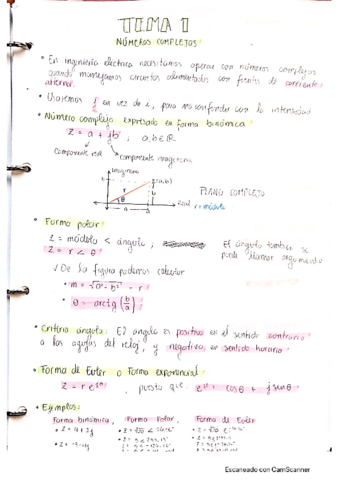 TEMA 1
NÚMEROS COMPLEJOS
• En ingeniería eléctrica necesitamos operar con números complejos
cuando manejamos circuitos alimentados con fuentes de corriente
alterna.
• Usaremos j en vez de i, para no confundir con la intensidad
• Número complejo expresado en forma binómica
Z = a + jb ; a, b ∈ R
Componente real
componente imaginaria
Imaginario
(a,b)
b
r
θ
a
Real
r = módulo
PLANO COMPLEJO
• Forma polar:
Z = módulo < ángulo ;
Z = r < θ
El ángulo también se
puede llamar argumento
√ De la figura podemos calcular
• m = √a² - b² = r
• θ = arctg (b/a)
• Criterio ángulo: El ángulo es positivo en el sentido contrario
a las agujas del reloj, y negativo en sentido horario
• Forma de Euler o Forma exponencial
Z = r e^jθ , puesto que: e^jθ = cosθ + j senθ
• Ejemplos:
Forma binómica, Forma Polar, Forma de Euler
Escaneado con CamScanner